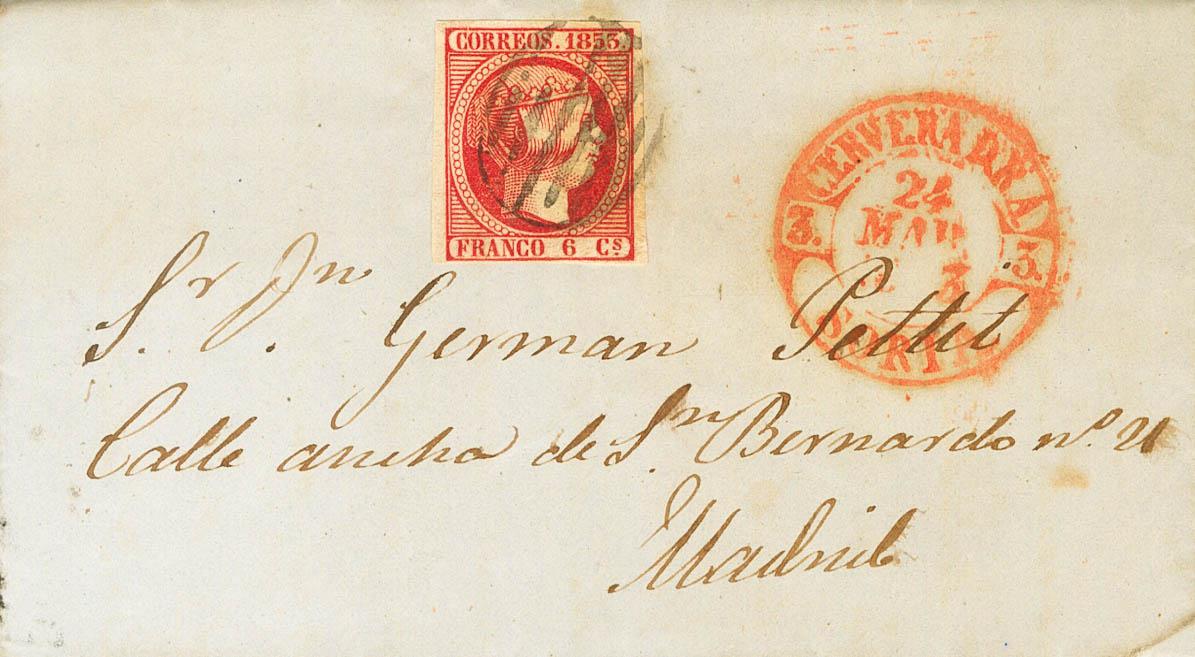 CORREOS. 1853.
FRANCO 6 Cs
CERVERA D.R.A
24
3. 3.
3
SORIA
Sr. Dn. German Pettit
Calle ancha de Sn. Bernardo nº 21
Madrid